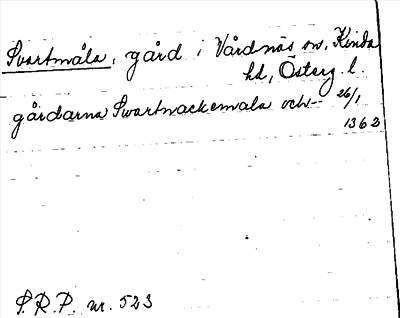 Svartmåla, gård i Vårdnäs sn, Kinda
hd, Österg. l.
gårdarna Swartnackemala och-- 26/1
1362
S.R.P. nr. 523